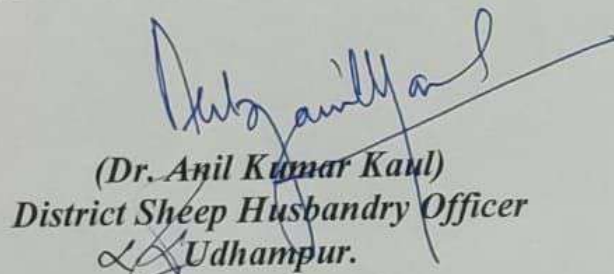 (Dr. Anil Kumar Kaul)
District Sheep Husbandry Officer
Udhampur.